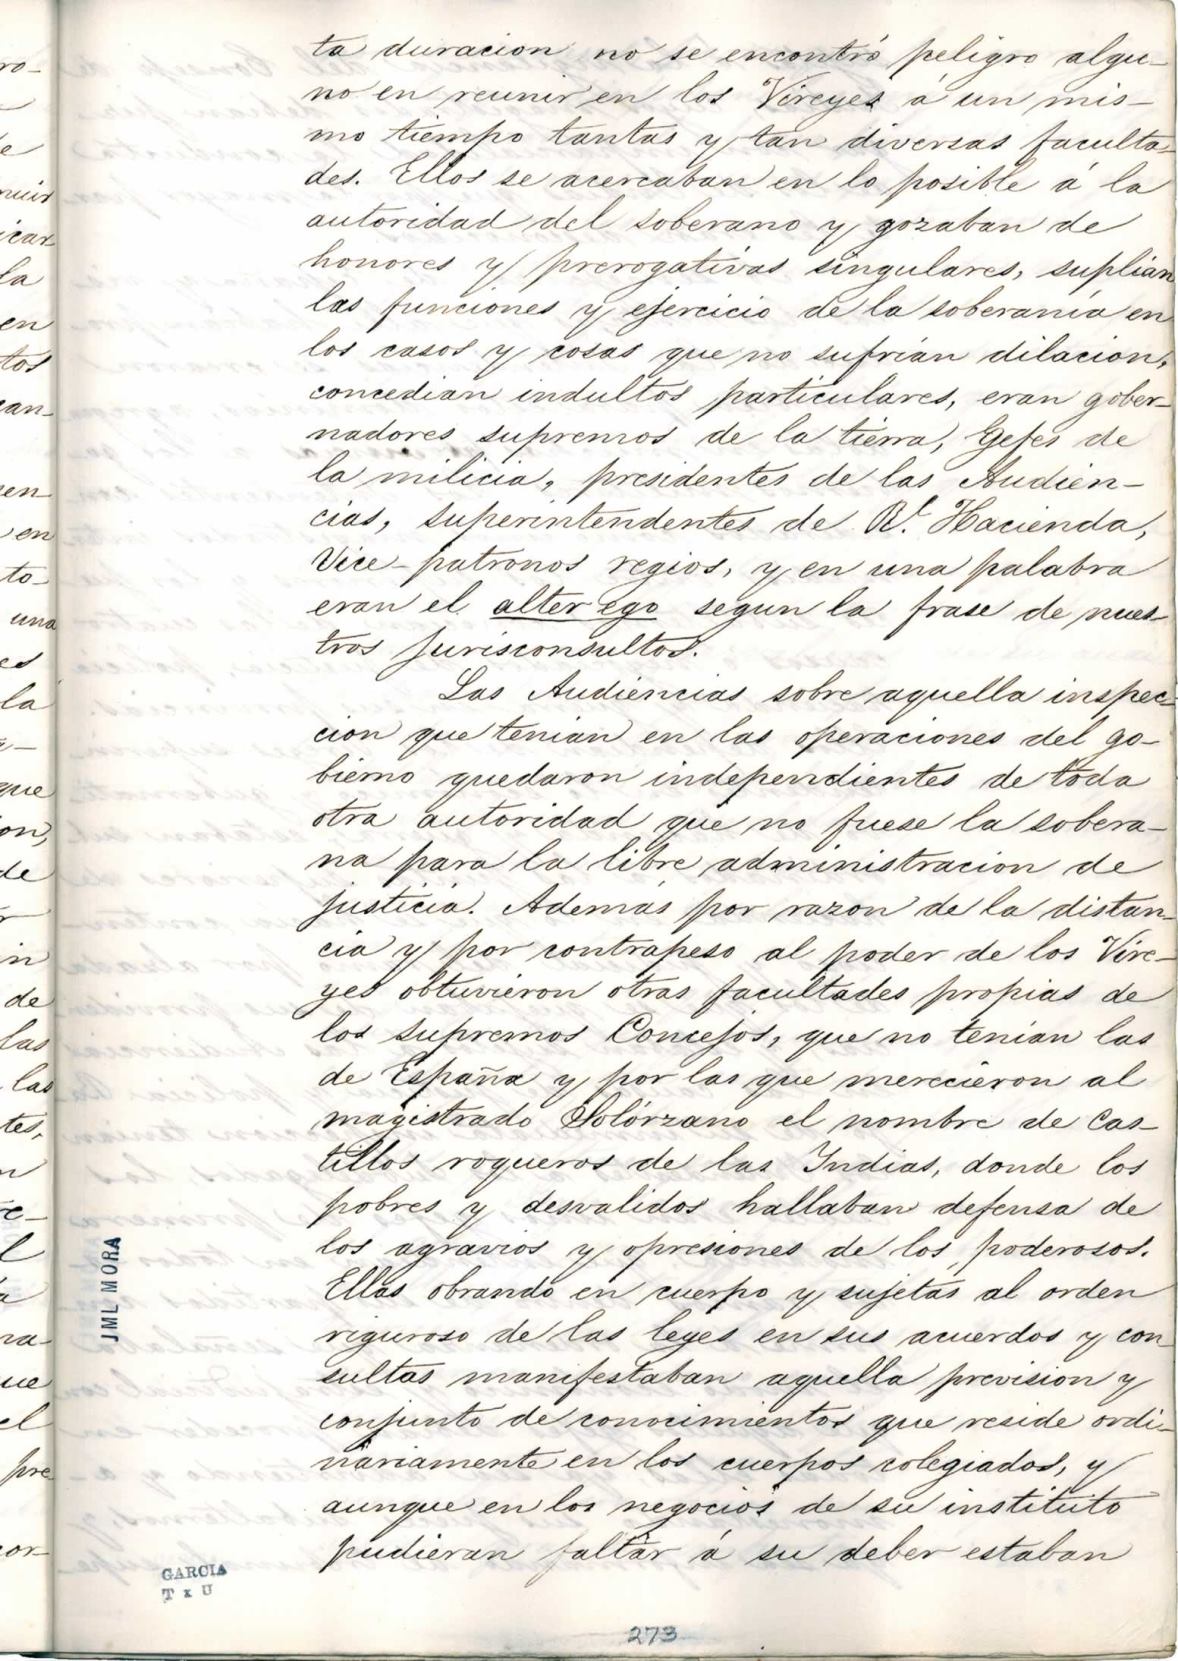 ta duracion no se encontró peligro algu-
no en reunir en los Vireyes á un mis-
mo tiempo tantas y tan diversas faculta-
des. Ellos se acercaban en lo posible á la
autoridad del soberano y gozaban de
honores y prerogativas singulares, suplian
las funciones y ejercicio de la soberanía en
los casos y cosas que no sufrian dilacion,
concedian indultos particulares, eran gober-
nadores supremos de la tierra, Gefes de
la milicia, presidentes de las Audien-
cias, superintendentes de Rl. Hacienda,
Vice-patronos regios, y en una palabra
eran el alter ego segun la frase de nues-
tros jurisconsultos.
Las Audiencias sobre aquella inspec-
cion que tenian en las operaciones del go-
bierno quedaron independientes de toda
otra autoridad que no fuese la sobera-
na para la libre administracion de
justicia. Además por razon de la distan-
cia y por contrapeso al poder de los Vire-
yes obtuvieron otras facultades propias de
los supremos Concejos, que no tenian las
de España y por las que merecieron al
magistrado Solórzano el nombre de Cas-
tillos roqueros de las Indias, donde los
pobres y desvalidos hallaban defensa de
los agravios y opresiones de los poderosos.
Ellas obrando en cuerpo y sujetas al orden
riguroso de las leyes en sus acuerdos y con
sultas manifestaban aquella prevision y
conjunto de conocimientos que reside ordi-
nariamente en los cuerpos colegiados, y
aunque en los negocios de su instituto
pudieran faltar á su deber estaban
JML MORA
GARCIA
T x U
273